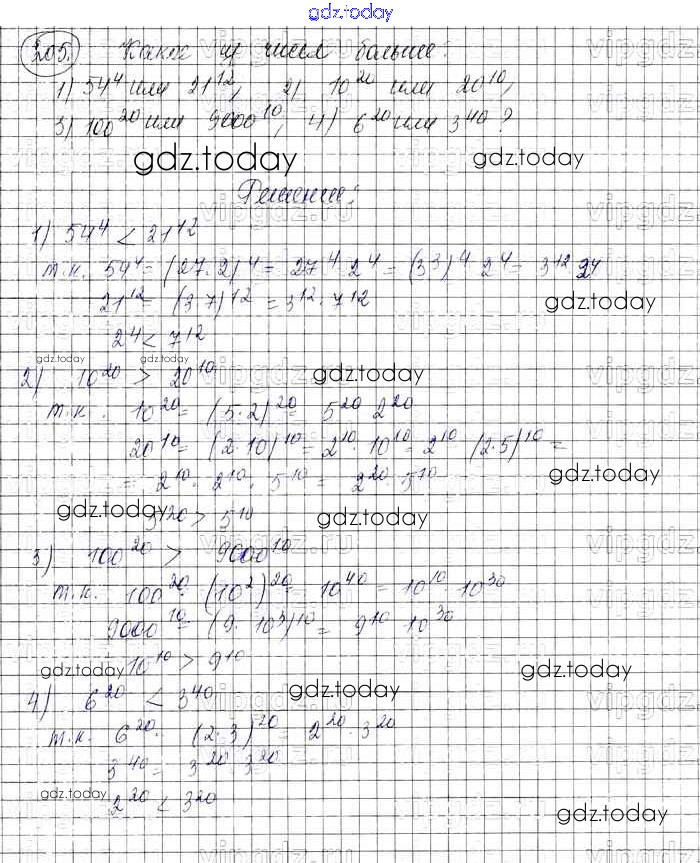 gdz.today
205. Какое из чисел больше:
1) 54⁴ или 21¹², 2) 10²⁰ или 20¹⁰,
3) 100²⁰ или 9000¹⁰, 4) 6²⁰ или 3⁴⁰?
gdz.today gdz.today
Решение:
1) 54⁴ < 21¹²
т.к. 54⁴ = (27·2)⁴ = 27⁴·2⁴ = (3³)⁴ 2⁴ = 3¹² 2⁴
21¹² = (3·7)¹² = 3¹²·7¹² gdz.today
2⁴ < 7¹²
gdz.today gdz.today
2) 10²⁰ > 20¹⁰ gdz.today
т.к. 10²⁰ = (5·2)²⁰ = 5²⁰ 2²⁰
20¹⁰ = (2·10)¹⁰ = 2¹⁰·10¹⁰ = 2¹⁰ (2·5)¹⁰ =
= 2¹⁰·2¹⁰·5¹⁰ = 2²⁰ 5¹⁰ gdz.today
gdz.today gdz.today
5²⁰ > 5¹⁰
3) 100²⁰ > 9000¹⁰
т.к. 100²⁰ = (10²)²⁰ = 10⁴⁰ = 10¹⁰ 10³⁰
9000¹⁰ = (9·10³)¹⁰ = 9¹⁰ 10³⁰
gdz.today 10¹⁰ > 9¹⁰ gdz.today
4) 6²⁰ < 3⁴⁰ gdz.today
т.к. 6²⁰ = (2·3)²⁰ = 2²⁰·3²⁰
3⁴⁰ = 3²⁰ 3²⁰
gdz.today 2²⁰ < 3²⁰
gdz.today